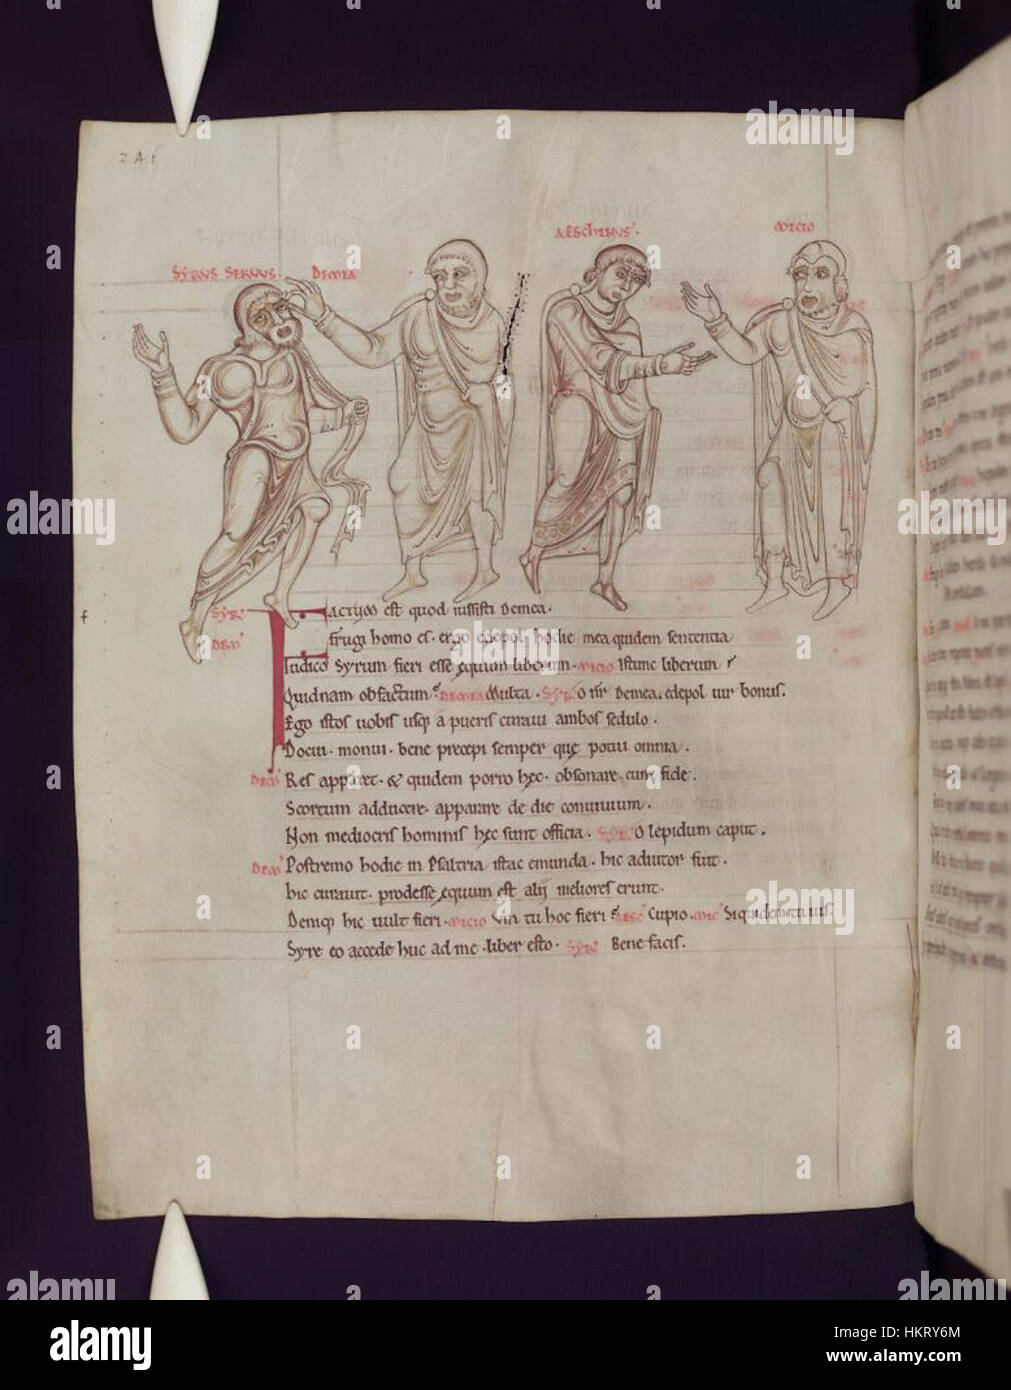 SYRUS SERVUS. DEMEA AESCHINUS. MICIO
Syr' Factum est quod iussisti Demea.
Dem' frugi homo es. ergo edepol hodie mea quidem sententia
Iudico Syrum fieri esse ęquum liberum. MICIO istunc liberum
Quidnam ob factum DEMEA Multa. Syr' O nr Demea. edepol uir bonus.
Ego istos uobis usq; a pueris curaui ambos sedulo.
Docui. monui. bene precepi semper quę potui omnia.
Dem' Res apparet. & quidem porro hęc. obsonare. cum fide.
Scortum adducere. apparare de die conuiuium.
Non mediocris hominis hęc sunt officia. Syr' O lepidum caput.
Dem' Postremo hodie in Psaltria istac emunda. hic adiutor fuit.
hic curauit. prodesse ęquum est alij meliores erunt.
Deniq; hic uult fieri. MICIO Vin tu hoc fieri AESC' Cupio. MIC' Siquidem tu uis.
Syre eo accede huc ad me. liber esto. Syr' Bene facis.
alamy
Image ID: HKRY6M
www.alamy.com